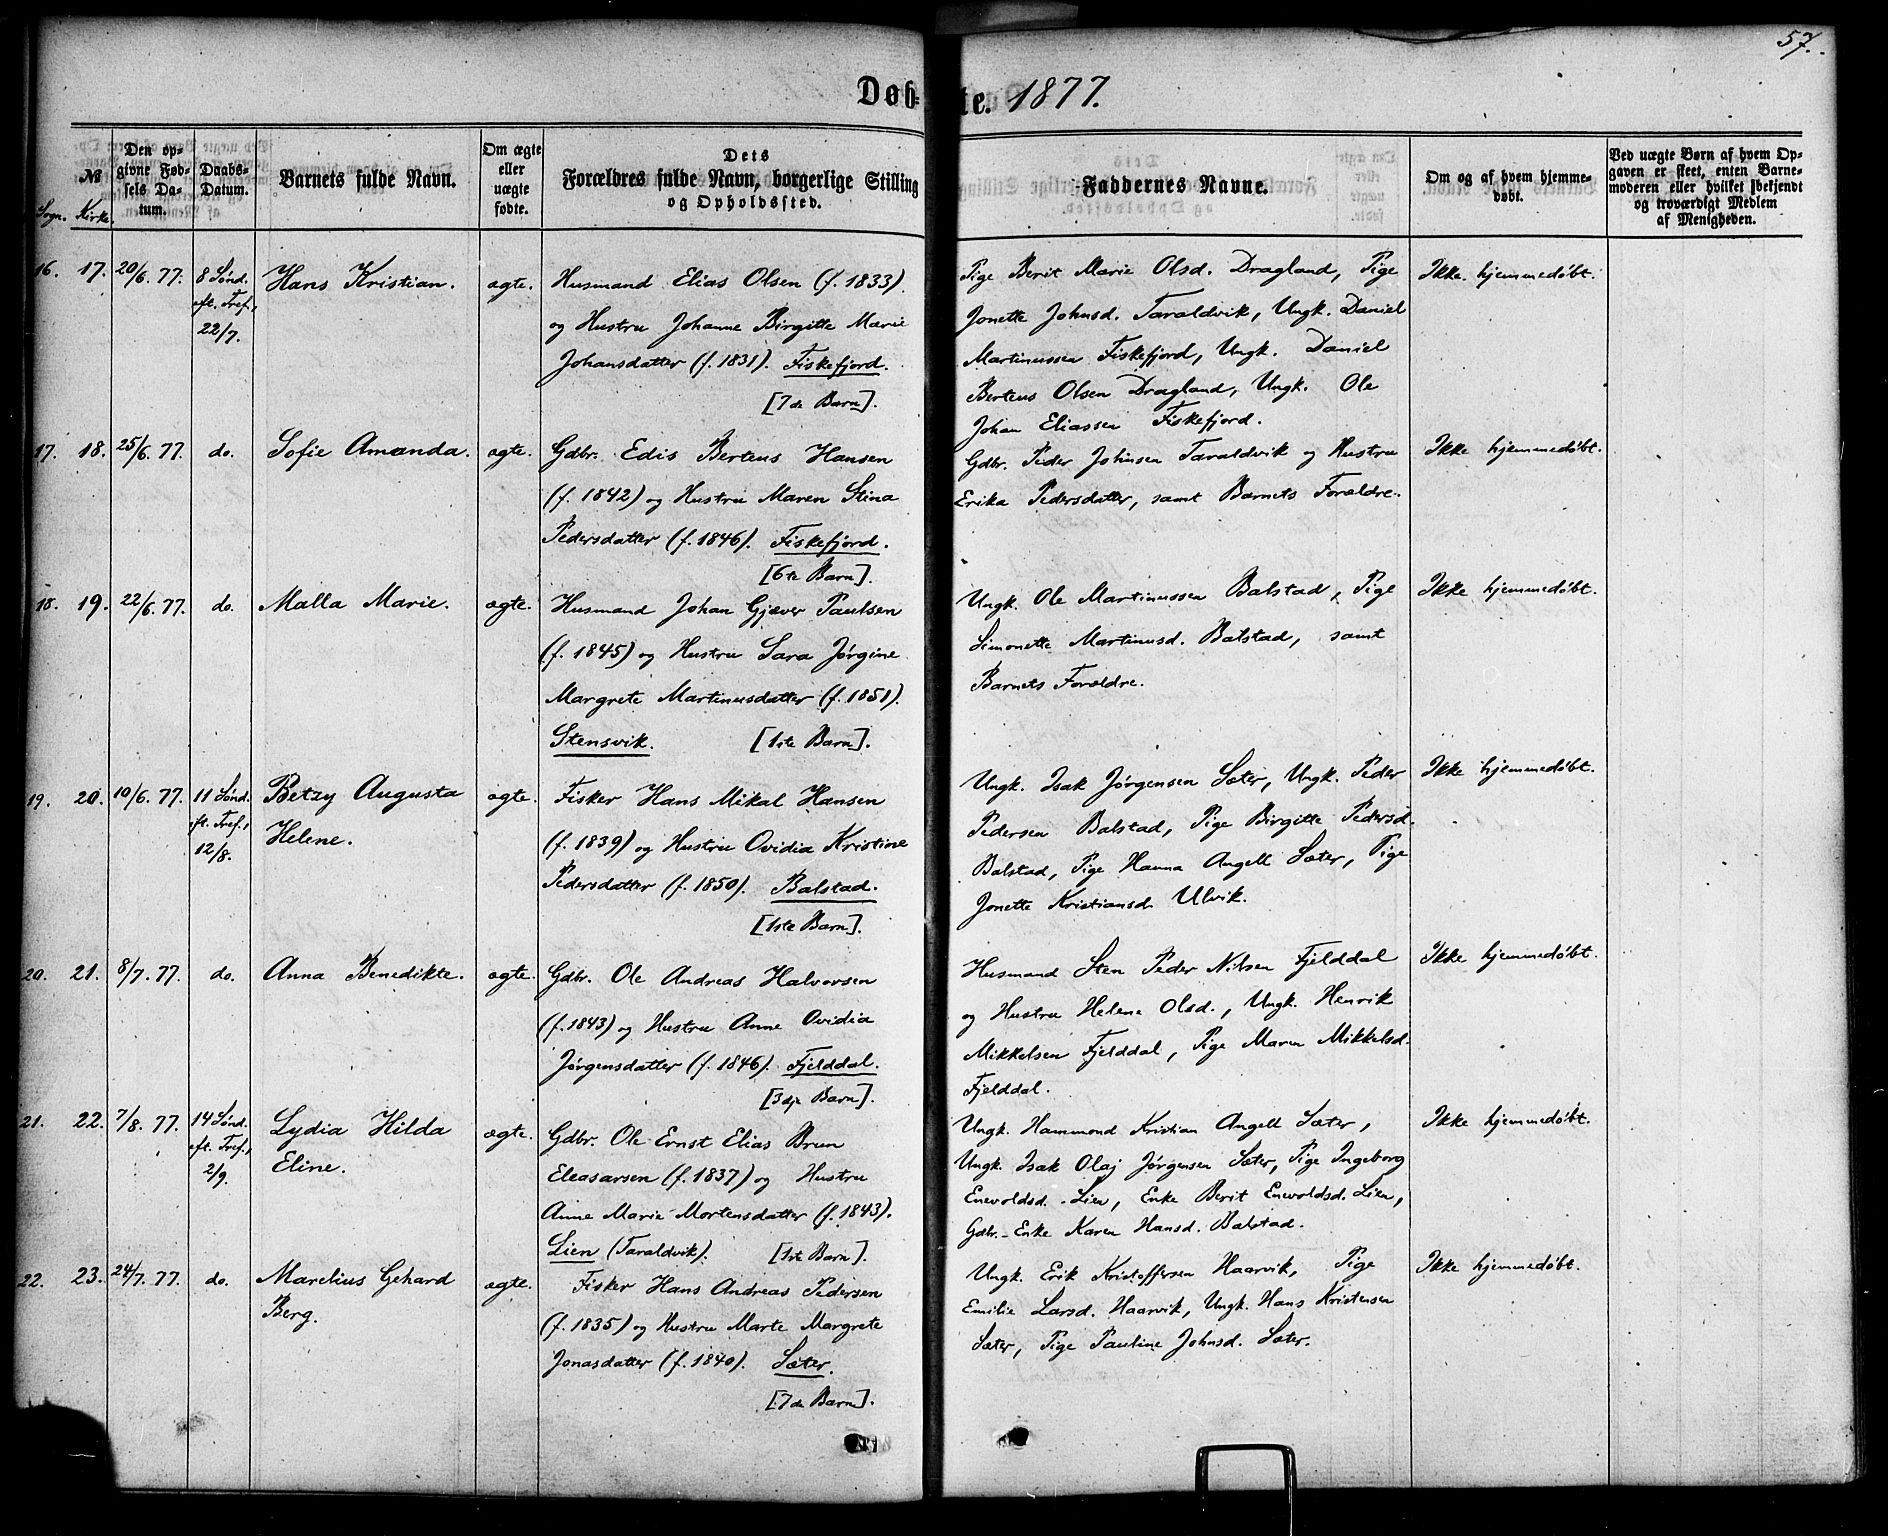 57.
Døb-te. 1877.
№
Sogn. Kirke.
Den op-
givne Fød-
sels Da-
tum.
Daabs-
Datum.
Barnets fulde Navn.
Om ægte
eller
uægte
fødte.
Dets
Forældres fulde Navn, borgerlige Stilling
og Opholdssted.
Faddernes Navne.
Om og af hvem hjemme-
døbt.
Ved uægte Børn af hvem Op-
gaven er skeet, enten Barne-
moderen eller hvilket bekjendt
og troværdigt Medlem
af Menigheden.
16. 17. 20/6. 77. 8 Sønd.
eft. Tref.,
22/7.
Hans Kristian.
ægte.
Husmand Elias Olsen (f. 1833)
og Hustru Johanne Birgitte Marie
Johansdatter (f. 1831). Fiskefjord.
[7de Barn].
Pige Berit Marie Olsd. Dragland, Pige
Jonette Johnsd. Taraldvik, Ungk. Daniel
Martinussen Fiskefjord, Ungk. Daniel
Berteus Olsen Dragland, Ungk. Ole
Johan Eliassen Fiskefjord.
Ikke hjemmedøbt.
17. 18. 25/6. 77. do. Sofie Amanda. ægte.
Gdbr. Edis Berteus Hansen
(f. 1842) og Hustru Maren Stina
Pedersdatter (f. 1846). Fiskefjord.
[6te Barn].
Gdbr. Peder Johnsen Taraldvik og Hustru
Erika Pedersdatter, samt Barnets Forældre.
Ikke hjemmedøbt.
18. 19. 22/6. 77. do. Malla Marie. ægte.
Husmand Johan Gjæver Paulsen
(f. 1845) og Hustru Sara Jørgine
Margrete Martinusdatter (f. 1851).
Stensvik. [1ste Barn].
Ungk. Ole Martinussen Balstad, Pige
Simonette Martinusd. Balstad, samt
Barnets Forældre.
Ikke hjemmedøbt.
19. 20. 10/6. 77. 11 Sønd.
eft. Tref.,
12/8.
Betzy Augusta
Helene.
ægte.
Fisker Hans Mikal Hansen
(f. 1839) og Hustru Ovidia Kristine
Pedersdatter (f. 1850). Balstad.
[1ste Barn].
Ungk. Isak Jørgensen Sæter, Ungk. Peder
Pedersen Balstad, Pige Birgitte Pedersd.
Balstad, Pige Hanna Angell Sæter, Pige
Jonette Kristiansd. Ulvik.
Ikke hjemmedøbt.
20. 21. 8/7. 77. do. Anna Benedikte. ægte.
Gdbr. Ole Andreas Halvorsen
(f. 1843) og Hustru Anne Ovidia
Jørgensdatter (f. 1846). Fjelddal.
[3dje Barn].
Husmand Sten Peder Nilsen Fjelddal
og Hustru Helene Olsd., Ungk. Henrik
Mikkelsen Fjelddal, Pige Maren Mikkelsd.
Fjelddal.
Ikke hjemmedøbt.
21. 22. 7/8. 77. 14 Sønd.
eft. Tref.,
2/9.
Lydia Hilda
Eline.
ægte.
Gdbr. Ole Ernst Elias Brun
Eleasarsen (f. 1837) og Hustru
Anne Marie Mortensdatter (f. 1843).
Lien (Taraldvik). [1ste Barn].
Ungk. Hammond Kristian Angell Sæter,
Ungk. Isak Olaj Jørgensen Sæter, Pige Ingeborg
Enevoldsd. Lien, Enke Berit Enevoldsd. Lien,
Gdbr.-Enke Karen Hansd. Balstad.
Ikke hjemmedøbt.
22. 23. 24/7. 77. do. Marelius Gehard
Berg.
ægte.
Fisker Hans Andreas Pedersen
(f. 1835) og Hustru Marte Margrete
Jonasdatter (f. 1840). Sæter.
[7de Barn].
Ungk. Erik Kristoffersen Haarvik, Pige
Emilie Larsd. Haarvik, Ungk. Hans Kristensen
Sæter, Pige Pauline Johnsd. Sæter.
Ikke hjemmedøbt.